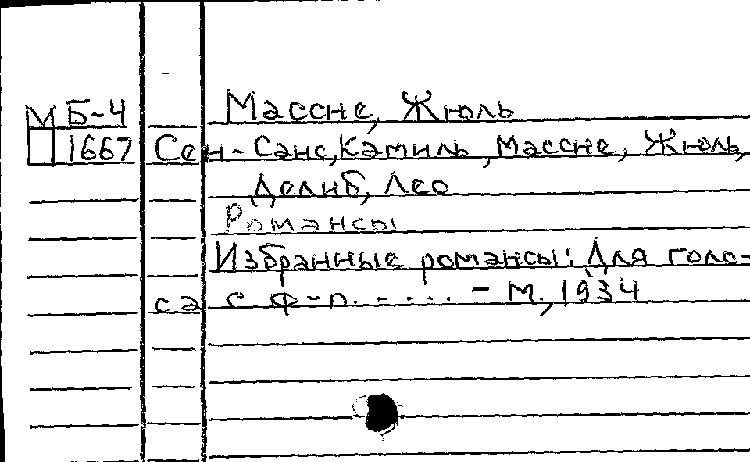 М Б-4 Массне, Жюль
1667 Сен-Санс, Камиль, Массне, Жюль,
Делиб, Лео
Романсы
Избранные романсы: Для голо-
са с ф-п. - . . . . - М., 1934